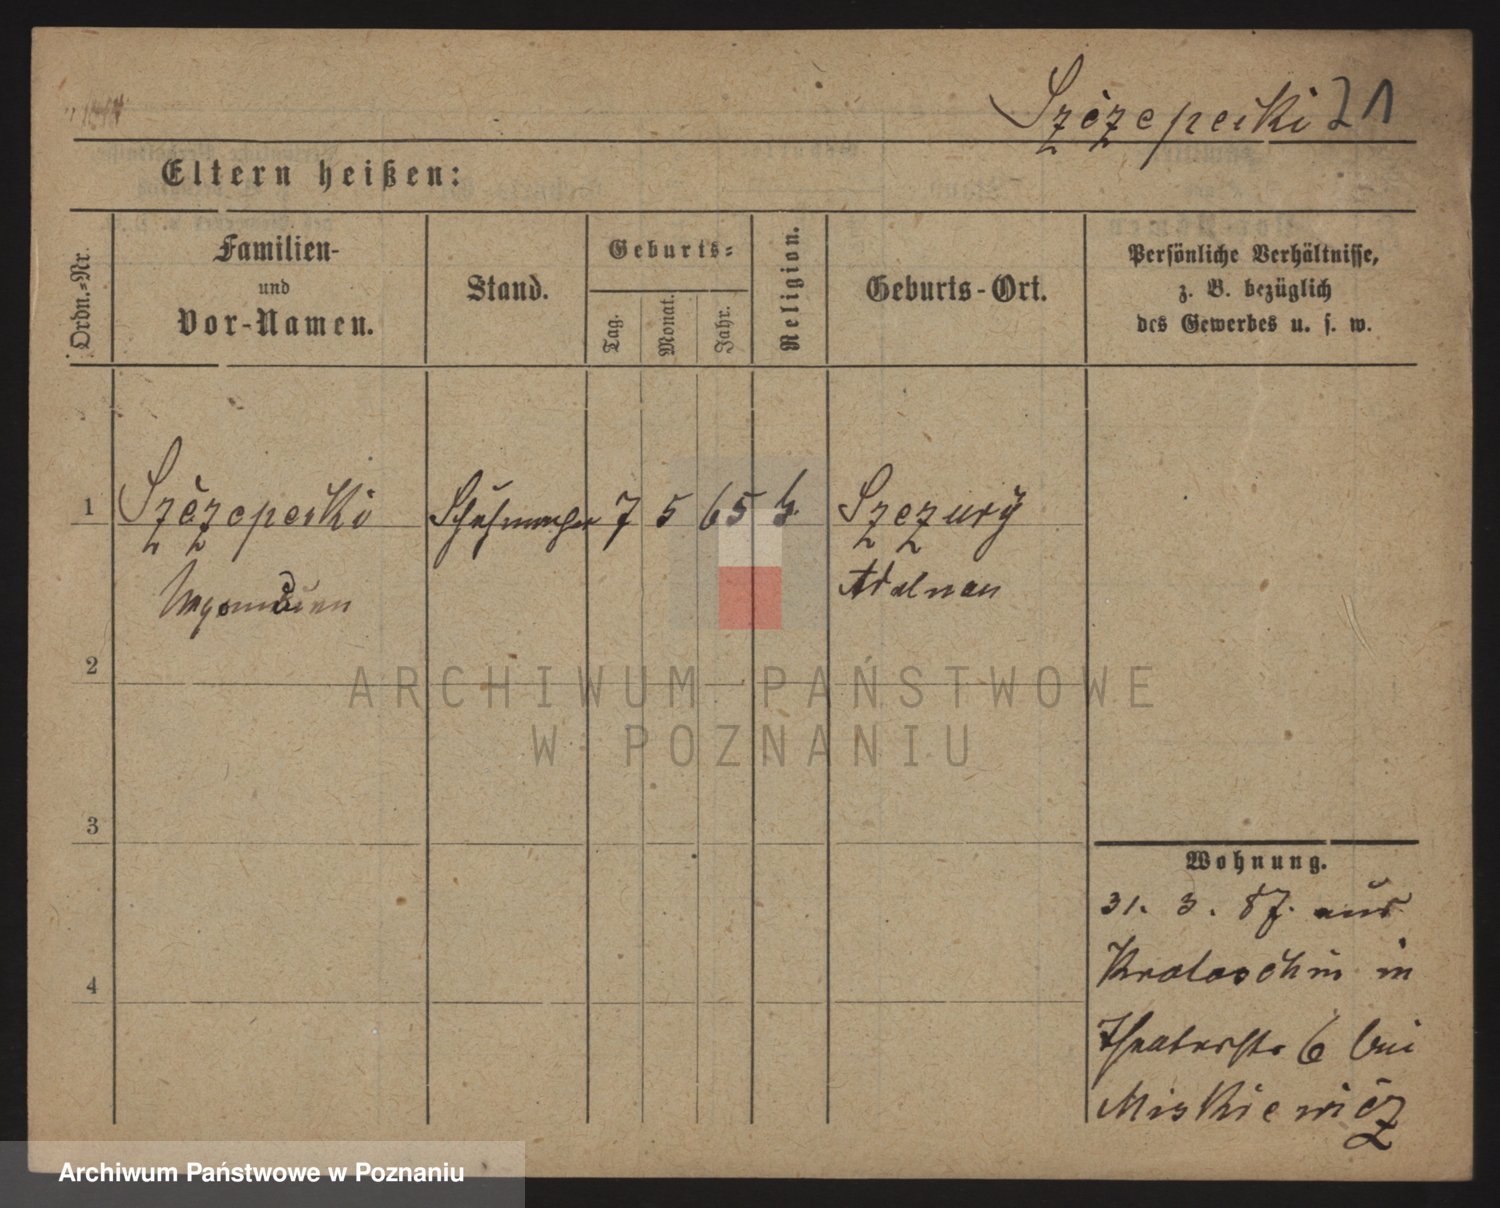 Szczepecki 21
Eltern heißen:
Ordn.-Nr.
Familien-
und
Vor-Namen.
Stand.
Geburts-
Tag.
Monat.
Jahr.
Religion.
Geburts-Ort.
Persönliche Verhältnisse,
z. B. bezüglich
des Gewerbes u. s. w.
1 Szczepecki Schuhmacher 7 5 65 k. Szczury
Adelnau
2
3
4
Wohnung.
31. 3. 87. aus
Krotoschin in
Theaterstr 6 bei
Miskiewicz
ARCHIWUM PAŃSTWOWE
W POZNANIU
Archiwum Państwowe w Poznaniu